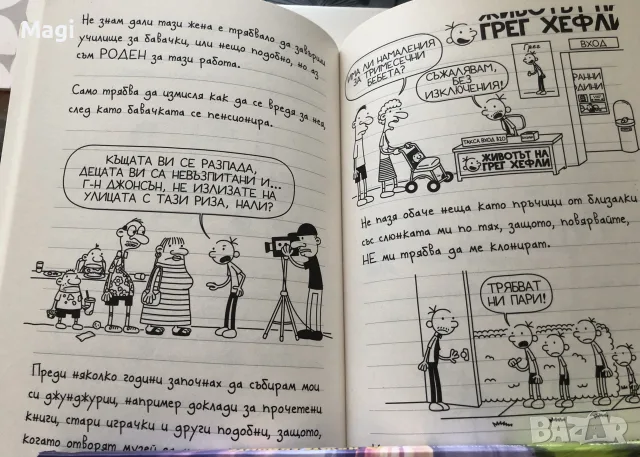 Magi
Не знам дали тази жена е трябвало да завърши
училище за бавачки, или нещо подобно, но аз
съм РОДЕН за тази работа.
Само трябва да измисля как да се вредя за нея,
след като бавачката се пенсионира.
КЪЩАТА ВИ СЕ РАЗПАДА,
ДЕЦАТА ВИ СА НЕВЪЗПИТАНИ И...
Г-Н ДЖОНСЪН, НЕ ИЗЛИЗАТЕ НА
УЛИЦАТА С ТАЗИ РИЗА, НАЛИ?
Преди няколко години започнах да събирам мои
си джунджурии, например доклади за прочетени
книги, стари играчки и други подобни, защото,
когато отворят музей
ЖИВОТЪТ НА
ГРЕГ ХЕФЛИ
ИМА ЛИ НАМАЛЕНИЯ
ЗА ТРИМЕСЕЧНИ
БЕБЕТА?
СЪЖАЛЯВАМ,
БЕЗ
ИЗКЛЮЧЕНИЯ!
Грег
ВХОД
РАННИ
ГОДИНИ
ТАКСА ВХОД $10
ЖИВОТЪТ НА
ГРЕГ ХЕФЛИ
Не пазя обаче неща като пръчици от близалки
със слюнката ми по тях, защото, повярвайте,
НЕ ми трябва да ме клонират.
ТРЯБВАТ
НИ ПАРИ!
BAZAR